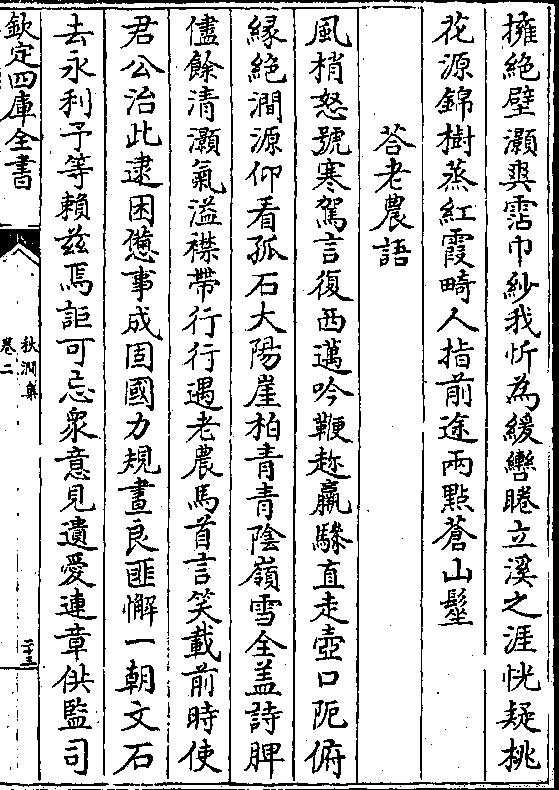 擁絶壁灝爽霑巾紗我忻為緩轡睠立溪之涯恍疑桃
花源錦樹蒸紅霞畸人指前途兩點蒼山髽
荅老農語
風梢怒號寒駕言復西邁吟鞭趂羸驂直走壺口阨俯
縁絶澗源仰看孤石大陽崖柏青青陰嶺雪全盖詩脾
儘餘清灝氣溢襟帶行行遇老農馬首言笑載前時使
君公治此逮困憊事成固國力規畫良匪懈一朝文石
去永利予等賴兹焉詎可忘衆意見遺愛連章供監司
欽定四庫全書
秋澗集
卷二
二十三